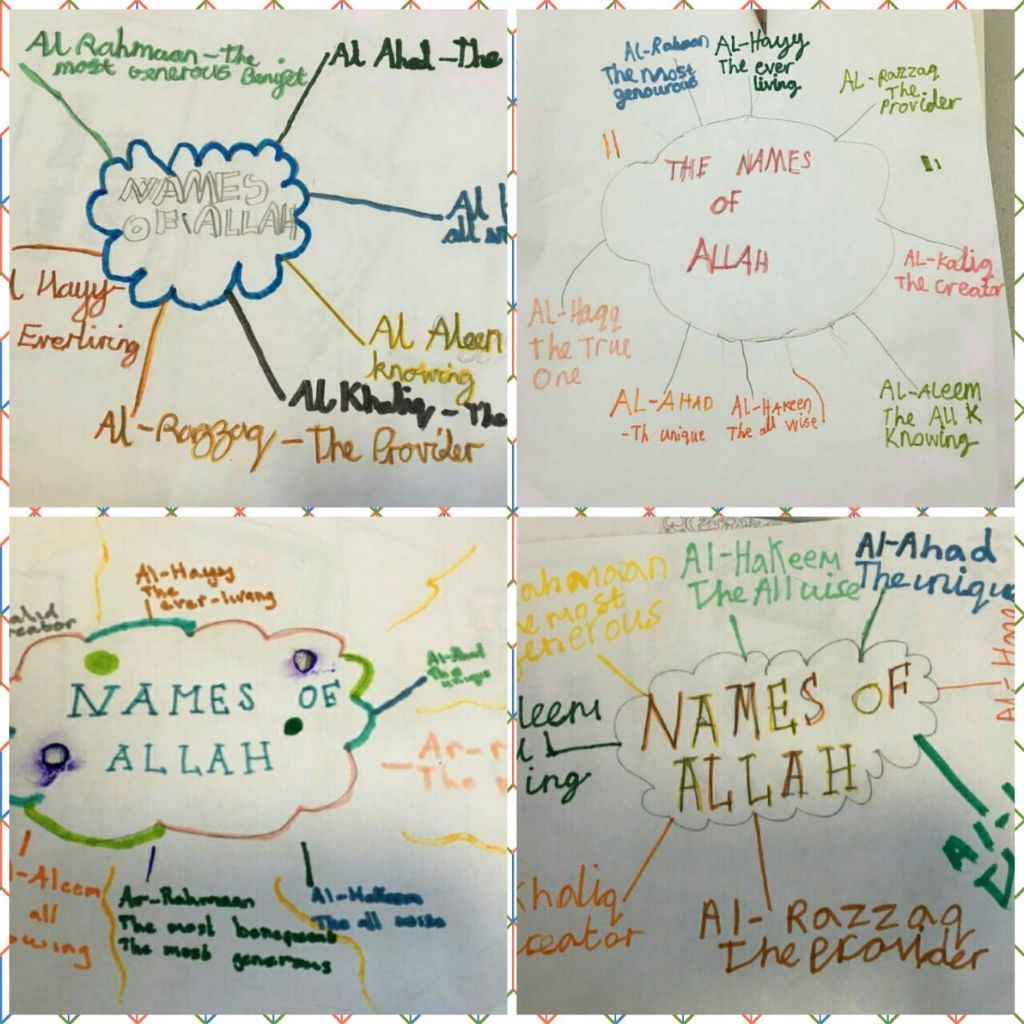 Al Rahmaan - The
most generous Benifet
Al Ahad - The
NAMES
OF ALLAH
Al
all
l Hayy-
Everliving
Al Aleen
knowing
Al Khaliq - The
Al-Razzaq - The Provider
AL-Rahaan
The most
genourous
AL-Hayy
The ever
living
AL-RAZZAQ
The
Provider
THE NAMES
OF
ALLAH
AL-Kaliq
The creator
AL-Haqq
The True
One
AL-AHAD
-Th unique
AL-HAKEEN
The all wise
AL-ALEEM
The All K
Knowing
Al-Hayy
The
ever-living
eator
NAMES OF
ALLAH
Al-Ahad
The
unique
Ar-r
The
l-Aleem
all
owing
Ar-Rahmaan
The most
The most generous
Al-Hakeem
The all wise
ahmaan
e most
enerous
Al-Hakeem
The All wise
Al-Ahad
The unique
NAMES OF
ALLAH
leem
l
ing
Khaliq
creator
Al-Razzaq
The Provider
Al-